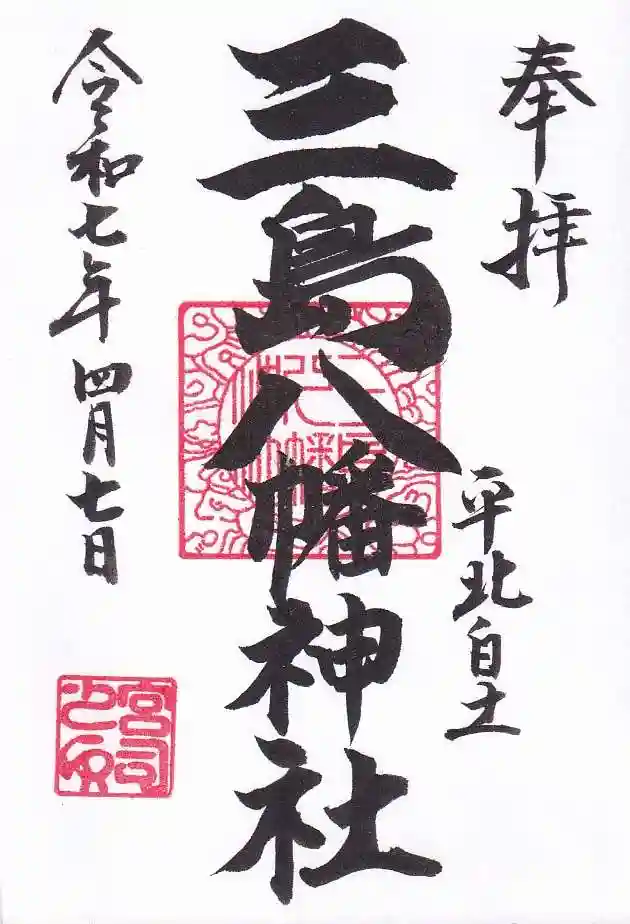 奉拝
平北白土
三島八幡神社
令和七年四月七日
宮司之印